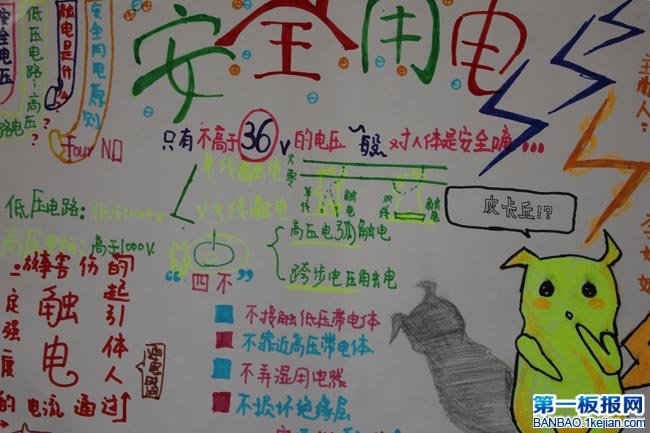 安全用电
安全电压
低压电路;高压电路?
触电是什么?
安全用电原则
Four NO
只有不高于36V的电压一般对人体是安全嘀...
单线触电
火
零
双线触电
单线
触电
双线
触电
低压电路:低于1000V
高压电路:高于1000V.
高压电弧触电
跨步电压触电
皮卡丘!?
"四不"
不接触低压带电体
不靠近高压带电体.
不弄湿用电器
不损坏绝缘层
一定强度的电流通过人体引起的伤害事故
触电
主机人:
第一板报网
BANBAO.1kejian.com